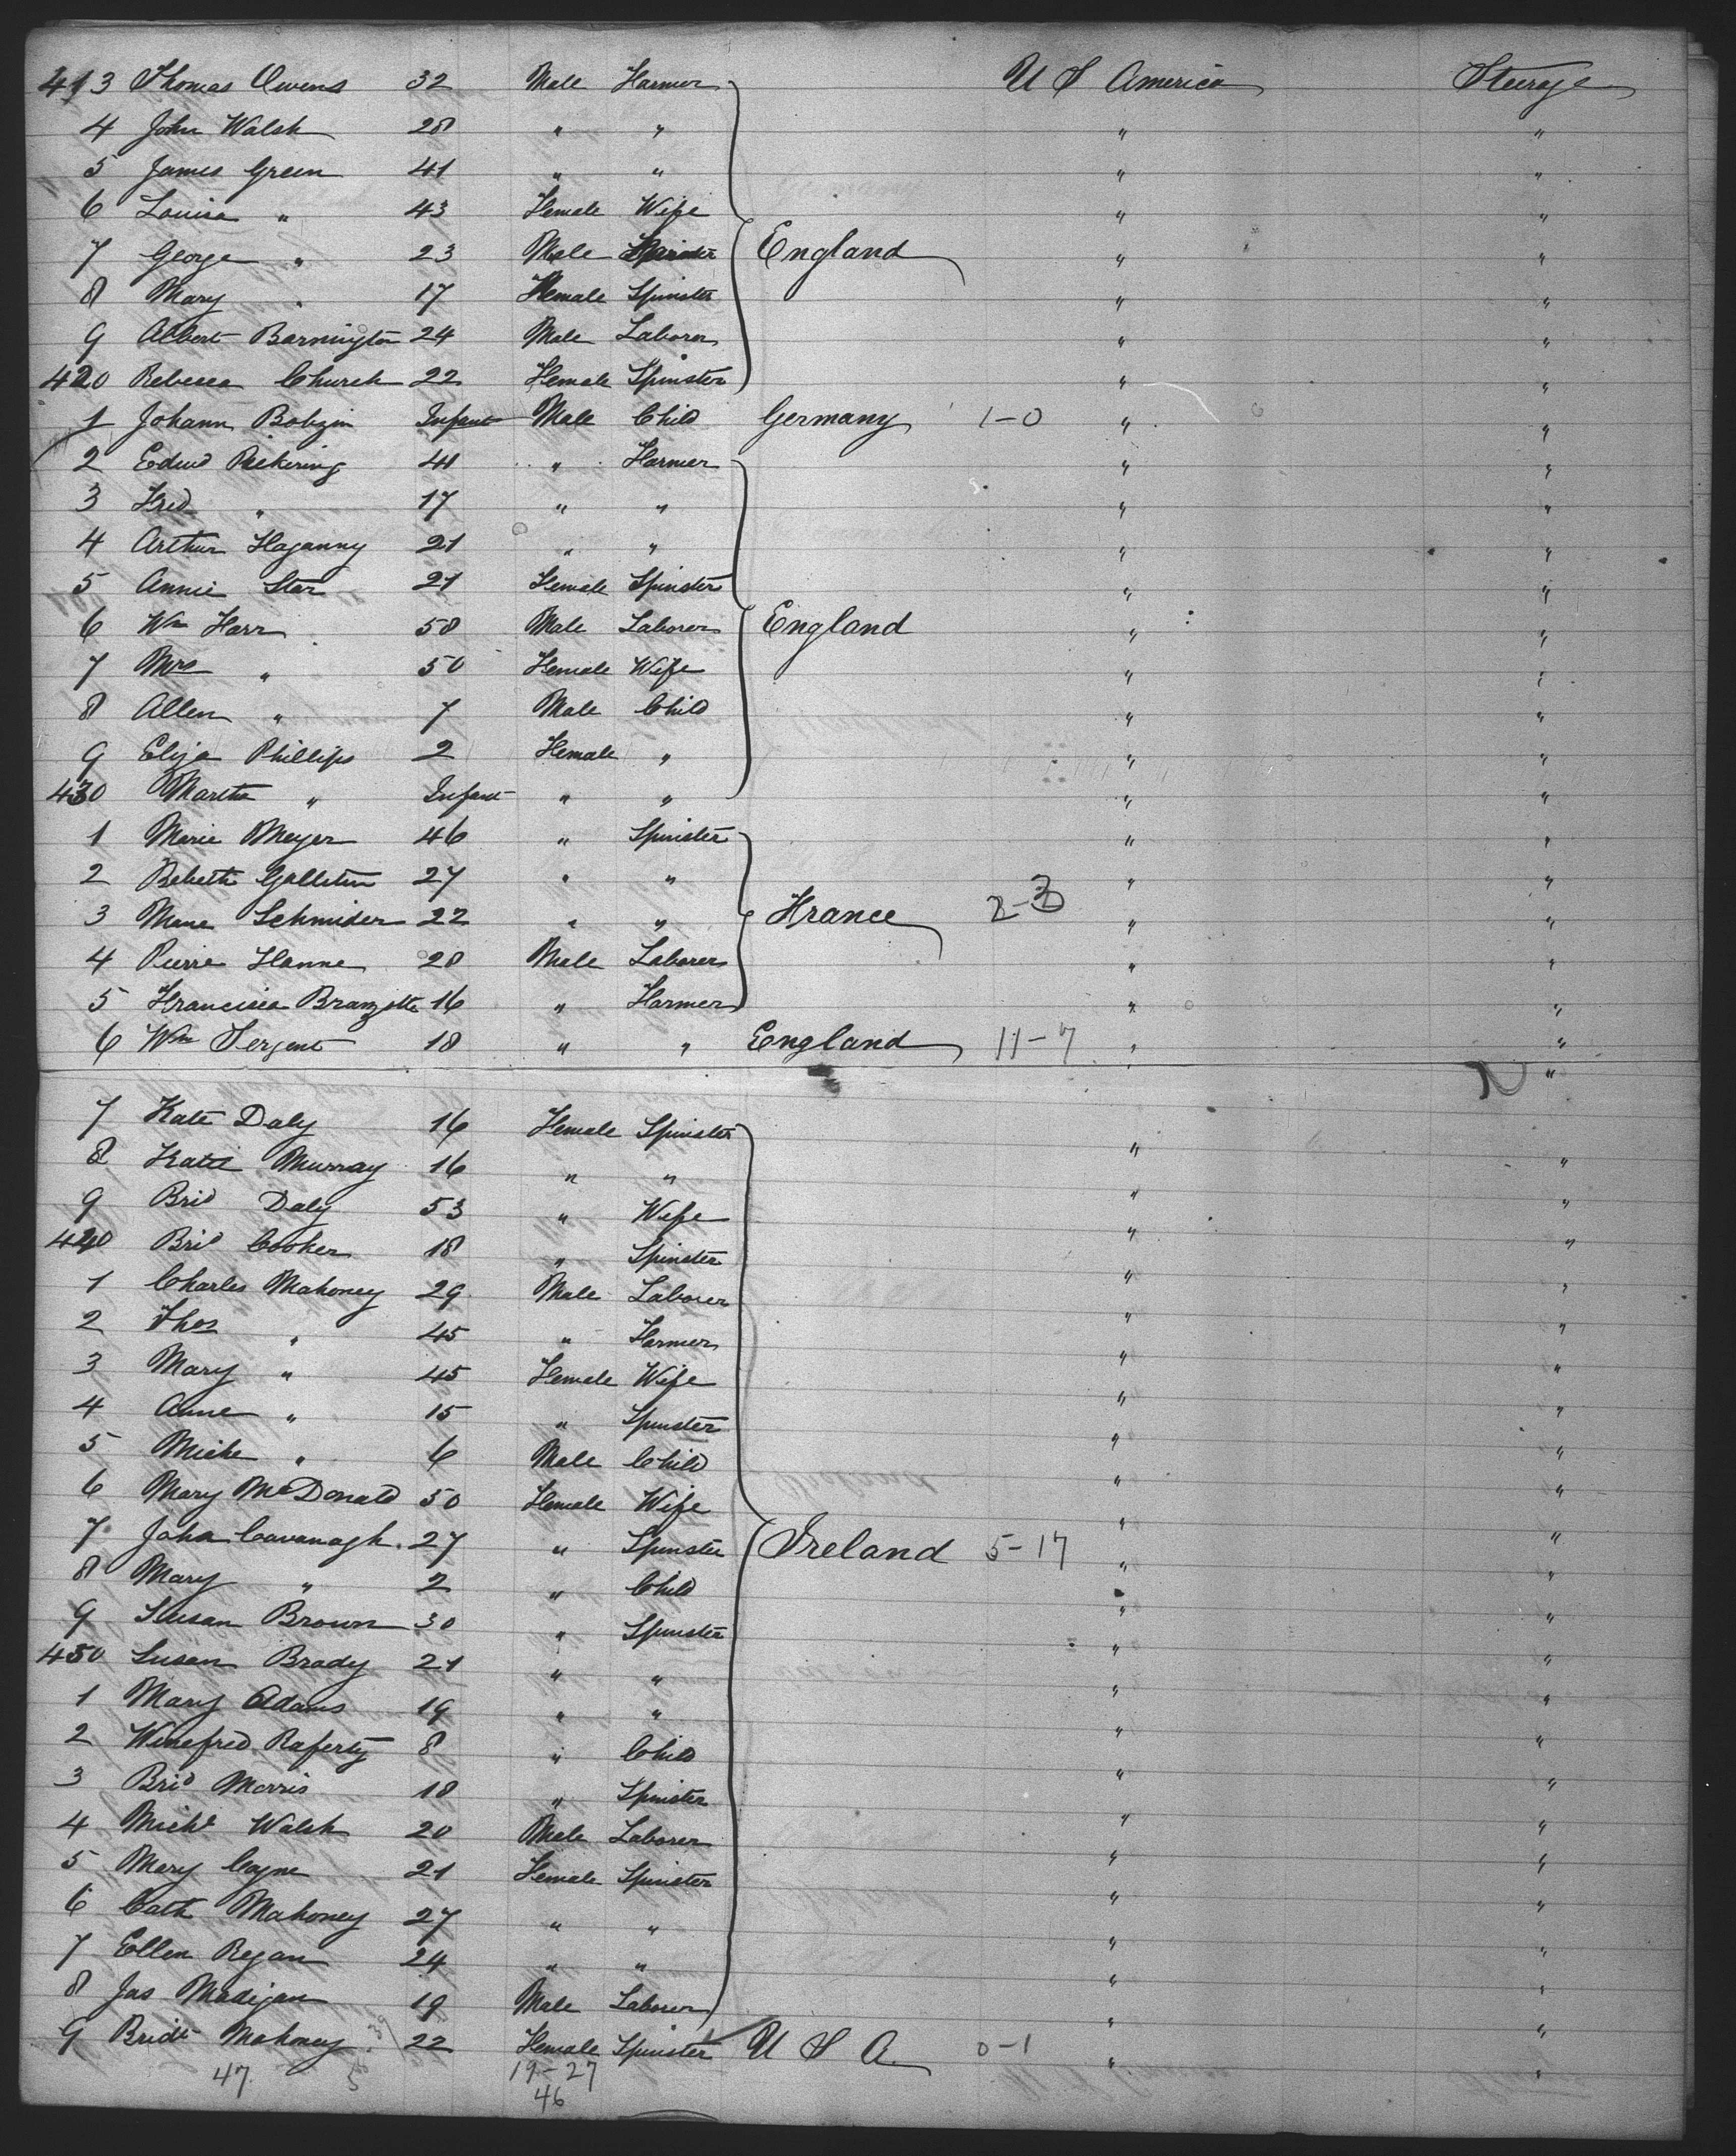 413 Thomas Owens 32 Male Farmer U S America Steerage
4 John Walsh 28 " " " "
5 James Green 41 " " " "
6 Louisa " 43 Female Wife " "
7 George " 23 Male England " "
8 Mary " 17 Female Spinster " "
9 Albert Barrington 24 Male Laborer " "
420 Rebecca Church 22 Female Spinster " "
1 Johann Bobzin Infant Male Child Germany 1-0 " "
2 Edwd Pickering 41 " Farmer " "
3 Fred " 17 " " " "
4 Arthur 21 " " " "
5 Annie Star 21 Female Spinster " "
6 Wm Harr 58 Male Laborer England " "
7 Mrs " 50 Female Wife " "
8 Allen " 7 Male Child " "
9 Eliza Phillips 2 Female " " "
430 Martha " Infant " " " "
1 Marie Meyer 46 " Spinster " "
2 Babeth 27 " " " "
3 Marie Schmider 22 " " France 2-3 " "
4 Pierre Hanne 28 Male Laborer " "
5 Francisca 16 " Farmer " "
6 Wm Sergent 18 " " England 11-7 " "
7 Kate Daly 16 Female Spinster " "
8 Kate Murray 16 " " " "
9 Brid Daly 53 " Wife " "
440 Brid Cooker 18 " Spinster " "
1 Charles Mahoney 29 Male Laborer " "
2 Thos " 45 " Farmer " "
3 Mary " 45 Female Wife " "
4 Anne " 15 " Spinster " "
5 Miche " 6 Male Child " "
6 Mary McDonald 50 Female Wife " "
7 Joha Cavanagh 27 " Spinster Ireland 5-17 " "
8 Mary " 2 " Child " "
9 Susan Brown 30 " Spinster " "
450 Susan Brady 21 " " " "
1 Mary Adams 19 " " " "
2 Winefred Raferty 8 " Child " "
3 Brid Morris 18 " Spinster " "
4 Michl Walsh 20 Male Laborer " "
5 Mary Coyne 21 Female Spinster " "
6 Cath Mahoney 27 " " " "
7 Ellen Regan 24 " " " "
8 Jas Madigan 19 Male Laborer " "
9 Bridt Mahoney 22 Female Spinster U S A. 0-1 " "
47 5 19-27
46